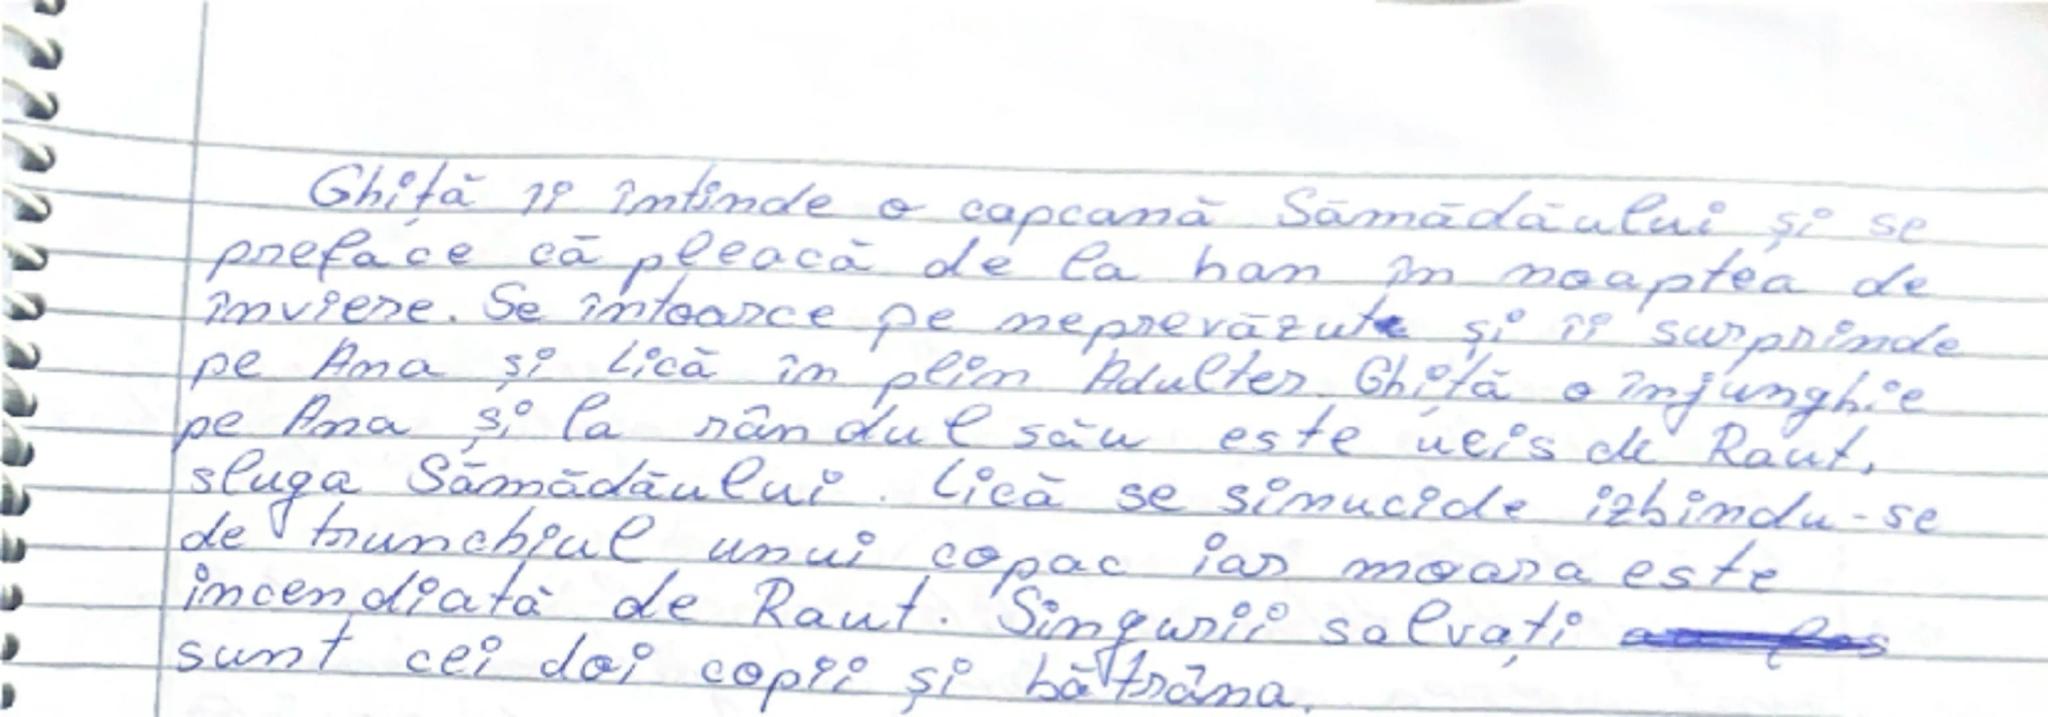 Ghiță îi întinde o capcană Sămădăului și se
preface că pleacă de la han în noaptea de
înviere. Se întoarce pe neprevăzute și îi surprinde
pe Ana și Lică în plin Adulter. Ghiță o înjunghie
pe Ana și la rândul său este ucis de Raut,
sluga Sămădăului. Lică se sinucide izbindu-se
de trunchiul unui copac iar moara este
incendiată de Raut. Singurii salvați
sunt cei doi copii și bătrâna.